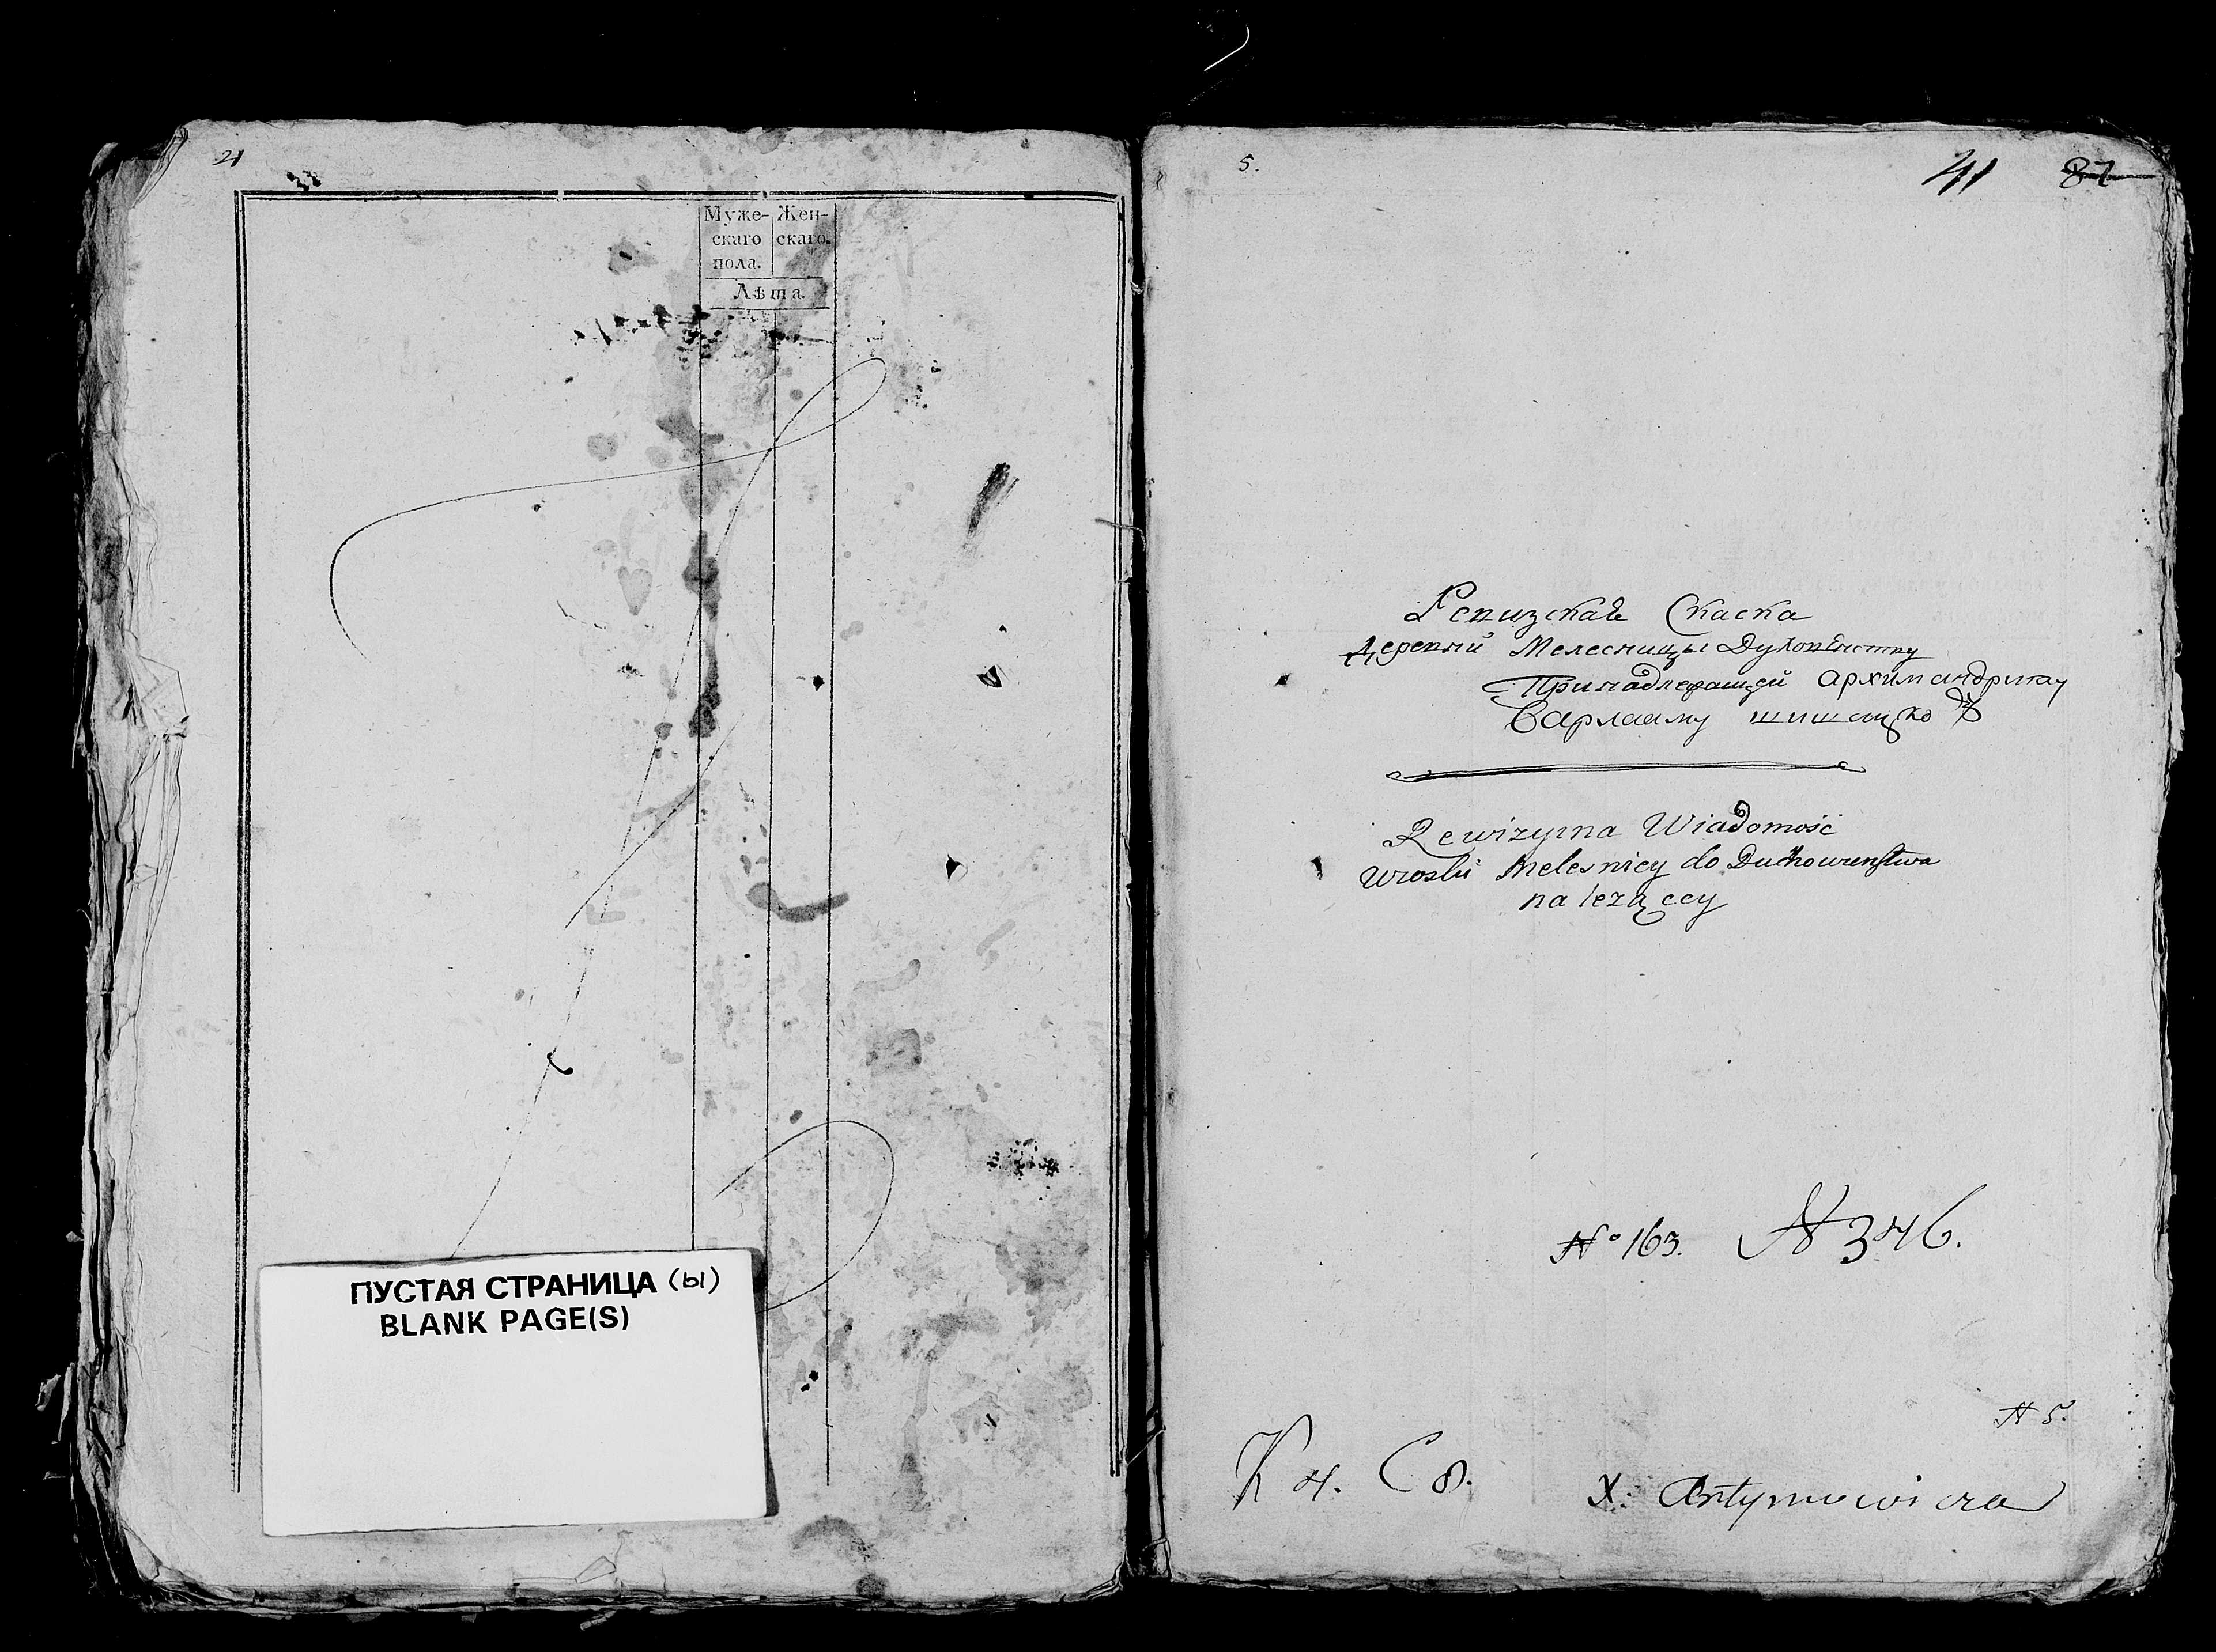 21
Муже-
скаго
пола.
Жен-
скаго.
Лѣта.
ПУСТАЯ СТРАНИЦА (ы)
BLANK PAGE(S)
5.
41 87
Ревизская Скаска
Деревни Мелесницы Духовенству
Принадлежащей архимандриту
Варлааму шишацко
Rewizyina Wiadomość
Wioski Melesnicy do Duchowienstwa
należącey
No 163. N 346.
N 5.
К 4. С 8.
X. Antymowicza